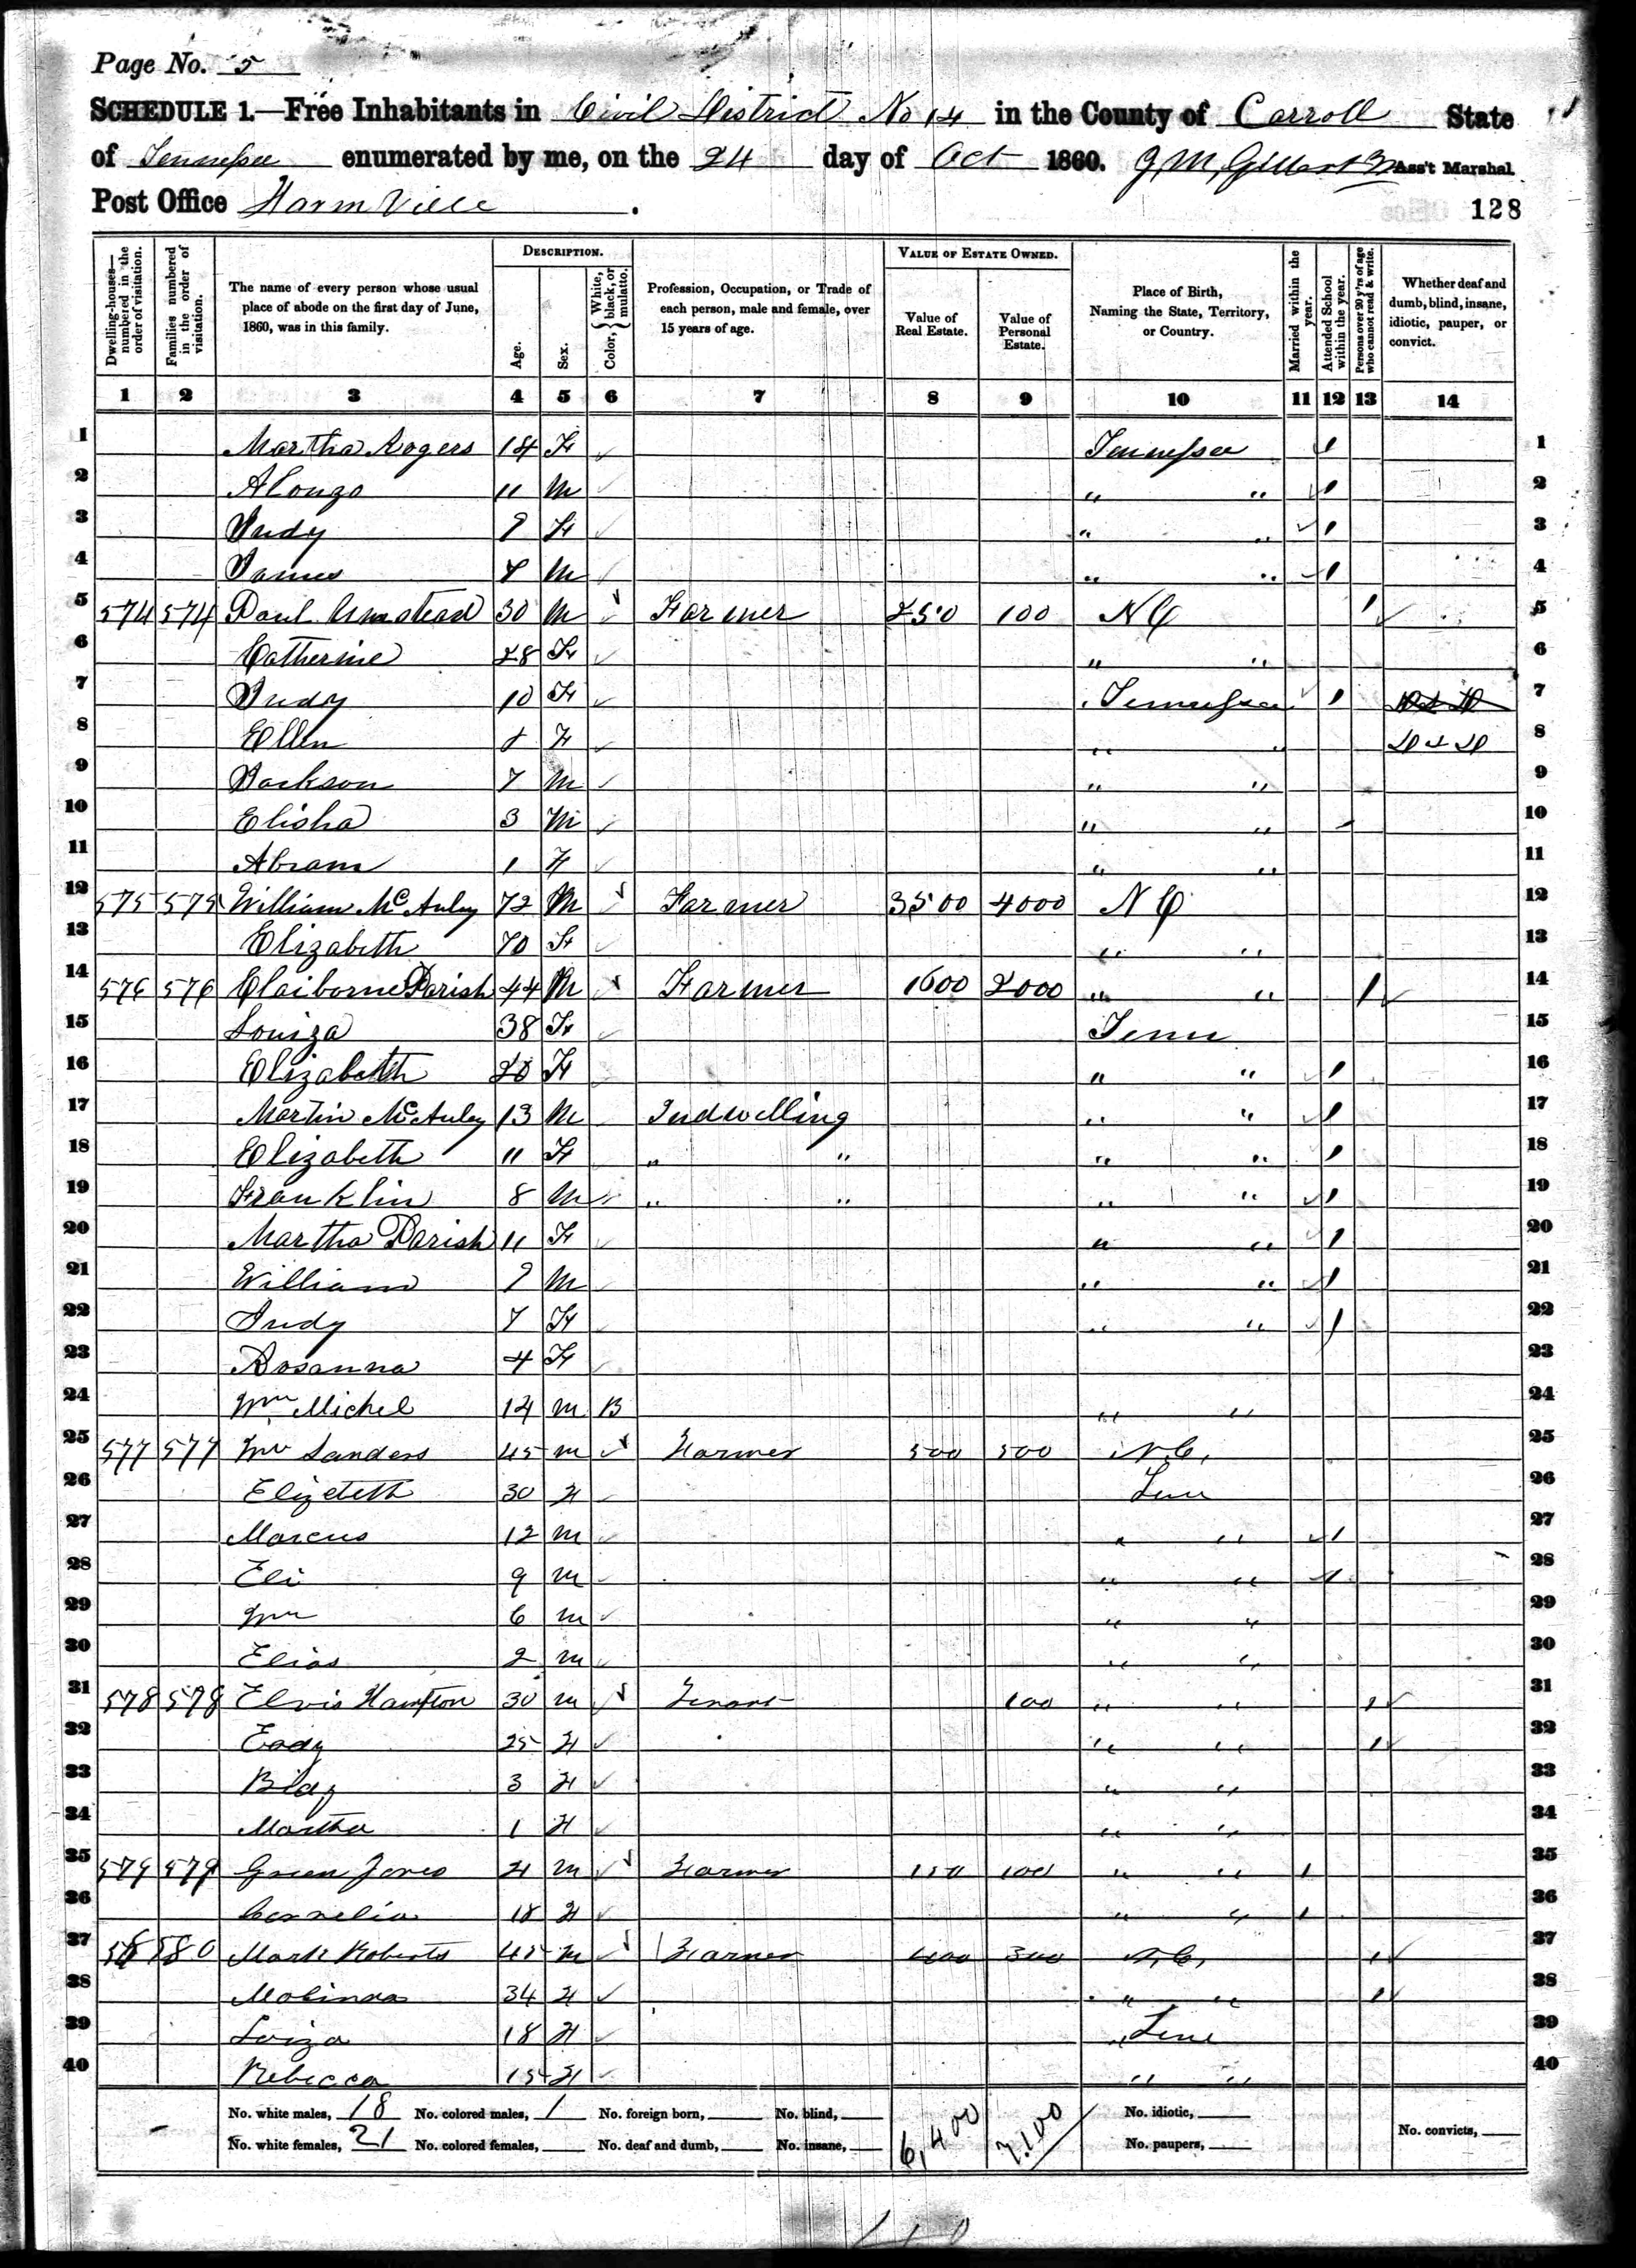 Page No. 5
SCHEDULE 1.—Free Inhabitants in Civil District No 14 in the County of Carroll State
of Tennessee enumerated by me, on the 24 day of Oct 1860. J. M. Gilbert Ass't Marshal
Post Office
128
Dwelling-houses—numbered in the order of visitation.
Families numbered in the order of visitation.
The name of every person whose usual place of abode on the first day of June, 1860, was in this family.
DESCRIPTION.
Age.
Sex.
Color, { White, black, or mulatto.
Profession, Occupation, or Trade of each person, male and female, over 15 years of age.
VALUE OF ESTATE OWNED.
Value of Real Estate.
Value of Personal Estate.
Place of Birth, Naming the State, Territory, or Country.
Married within the year.
Attended School within the year.
Persons over 20 y'rs of age who cannot read & write.
Whether deaf and dumb, blind, insane, idiotic, pauper, or convict.
1 2 3 4 5 6 7 8 9 10 11 12 13 14
1 Martha Rogers 14 F Tennessee / 1
2 Alonzo 11 M " " / 2
3 Judy 9 F " " / 3
4 James 7 M " " / 4
5 574 574 Paul Umstead 30 M Farmer 250 100 N C / 5
6 Catherine 28 F " " 6
7 Judy 10 F Tennessee / 7
8 Ellen 8 F " " D & D 8
9 Jackson 7 M " " 9
10 Elisha 3 M " " 10
11 Abram 1 F " " 11
12 575 575 William McAuley 72 M Farmer 3500 4000 N C 12
13 Elizabeth 70 F " " 13
14 576 576 Claiborne Parish 44 M Farmer 1600 2000 " " / 14
15 Louiza 38 F Tenn 15
16 Elizabeth 20 F " " / 16
17 Martin McAuley 13 M Indwelling " " / 17
18 Elizabeth 11 F " " " " / 18
19 Franklin 8 M " " " " / 19
20 Martha Parish 11 F " " / 20
21 William 9 M " " / 21
22 Judy 7 F " " / 22
23 Rosanna 4 F 23
24 Wm Michel 14 M B " " 24
25 577 577 Wm Sanders 45 M Farmer 500 500 N.C. 25
26 Elizeteth 30 F Tenn 26
27 Marcus 12 M " " / 27
28 Eli 9 M " " / 28
29 Wm 6 M " " 29
30 Elias 2 M " " 30
31 578 578 Elvis Hampton 30 M Tenant 100 " " / 31
32 Eady 25 F " " / 32
33 3 F " " 33
34 Martha 1 F " " 34
35 579 579 Green Jones 21 M Farmer 150 100 " " / 35
36 Cornelia 18 F " " / 36
37 580 Mark Roberts 45 M Farmer 400 300 N.C. / 37
38 Malinda 34 F " " / 38
39 Loiza 18 F Tenn 39
40 Rebecca 15 F " " 40
No. white males, 18 No. colored males, 1 No. foreign born, No. blind, 6,400 7.100 No. idiotic,
No. white females, 21 No. colored females, No. deaf and dumb, No. insane, No. paupers, No. convicts,